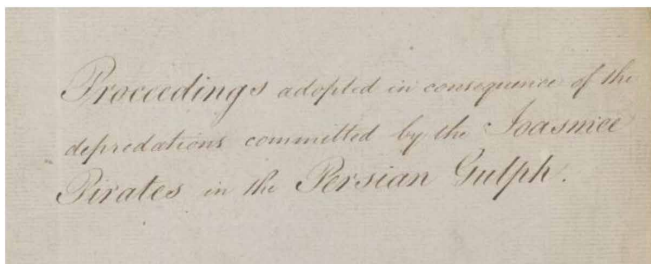 Proceedings adopted in consequence of the
depredations committed by the Joasmee
Pirates in the Persian Gulph.